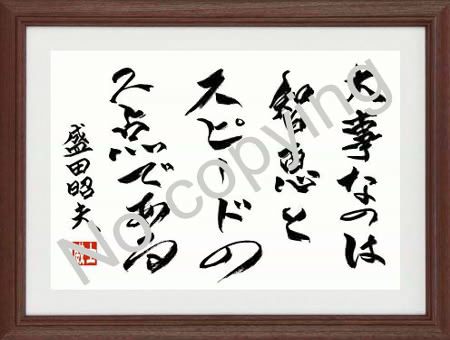 大事なのは
智恵と
スピードの
2点である
盛田昭夫
No copying